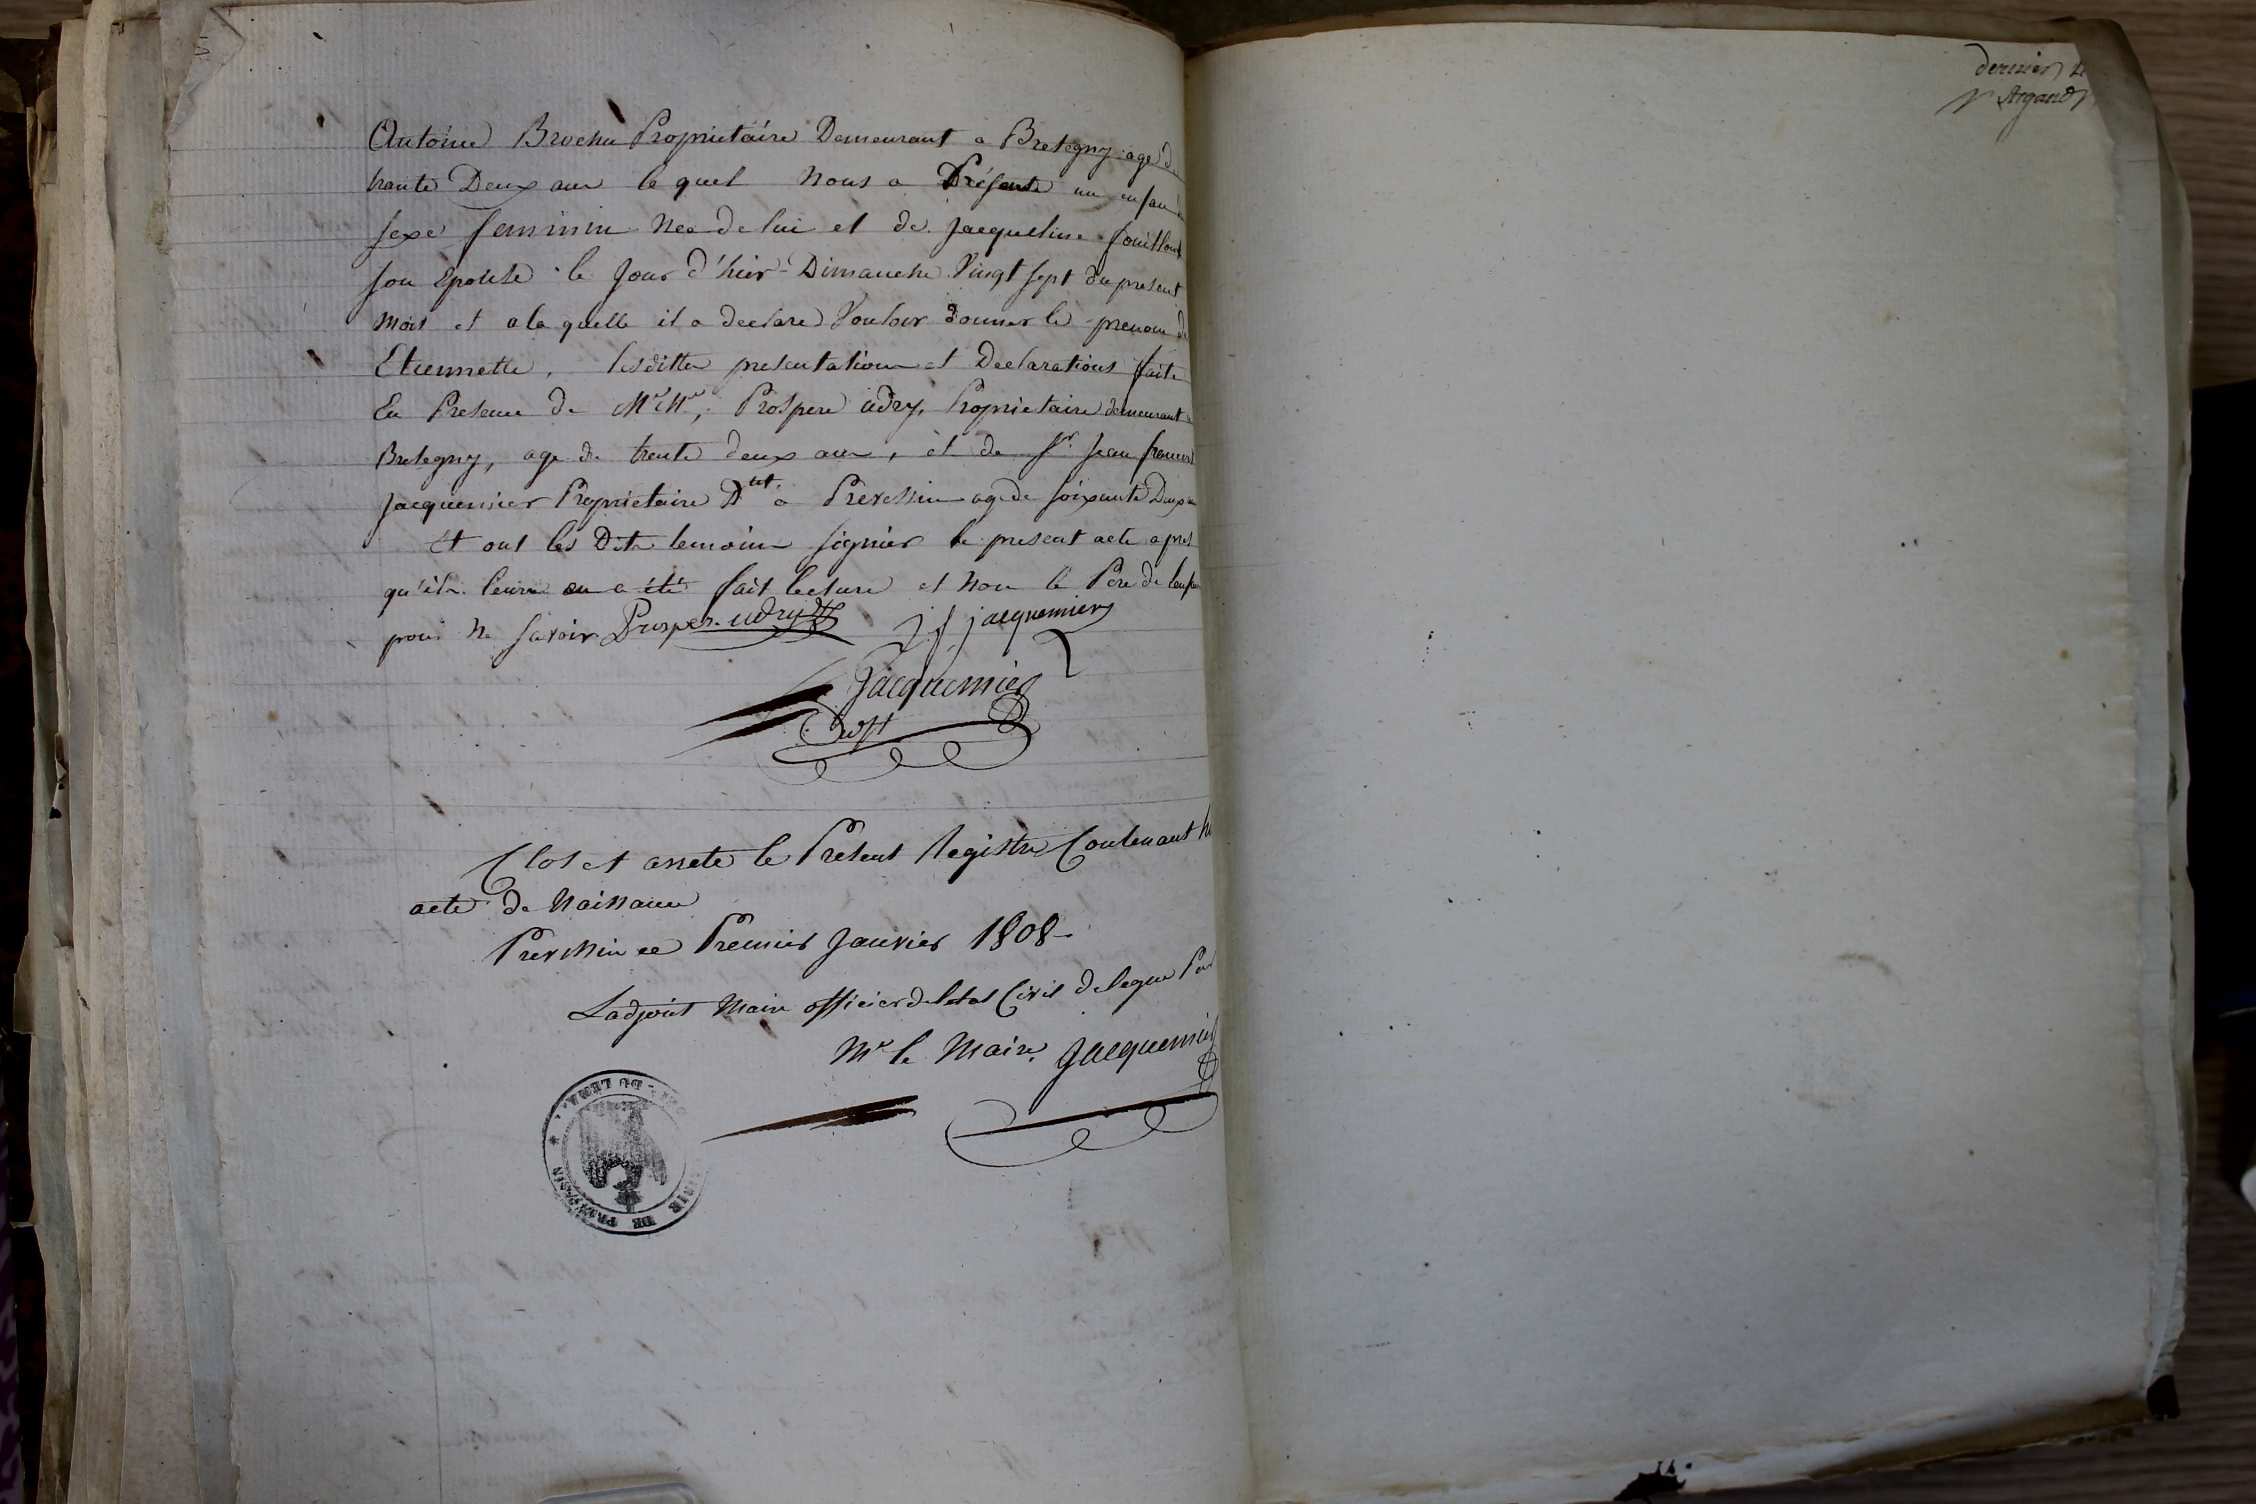 Antoine Brochu Proprietaire Demeurant a Bretegny age d
trante Deux ans le quel Nous a Présenté un enfan
sexe feminin Nee de lui et de Jacqueline fouilloux
son Epouse le Jour d'hier Dimanche Vingt sept du present
mois et a la quelle il a declare Vouloir donner le prenom de
Etiennette, lesditte presentation et Declarations faite
En Presence de Prospere udry, Proprietaire demeurant a
Bretegny, age de trente deux ans, et de Sr. Jean francois
Jacquemier Proprietaire Dt a Prevessin age de soixante Deux
Et ont les Dits temoins signier le present acte apres
qu'ils leurs en a été fait lecture et Non le Pere de lenfan
pour Ne savoir Prosper udry j f jacquemier
Jacquemier
adjt
Clos et arrete le Present Registre Contenant
acte de Naissance
Prevessin ce Premier Janvier 1808
Ladjoint Maire officier de letat Civil delegue Par
Mr le Maire, Jacquemier
MAIRIE DE PREVESSIN
DU LEMAN
dernier
Argand